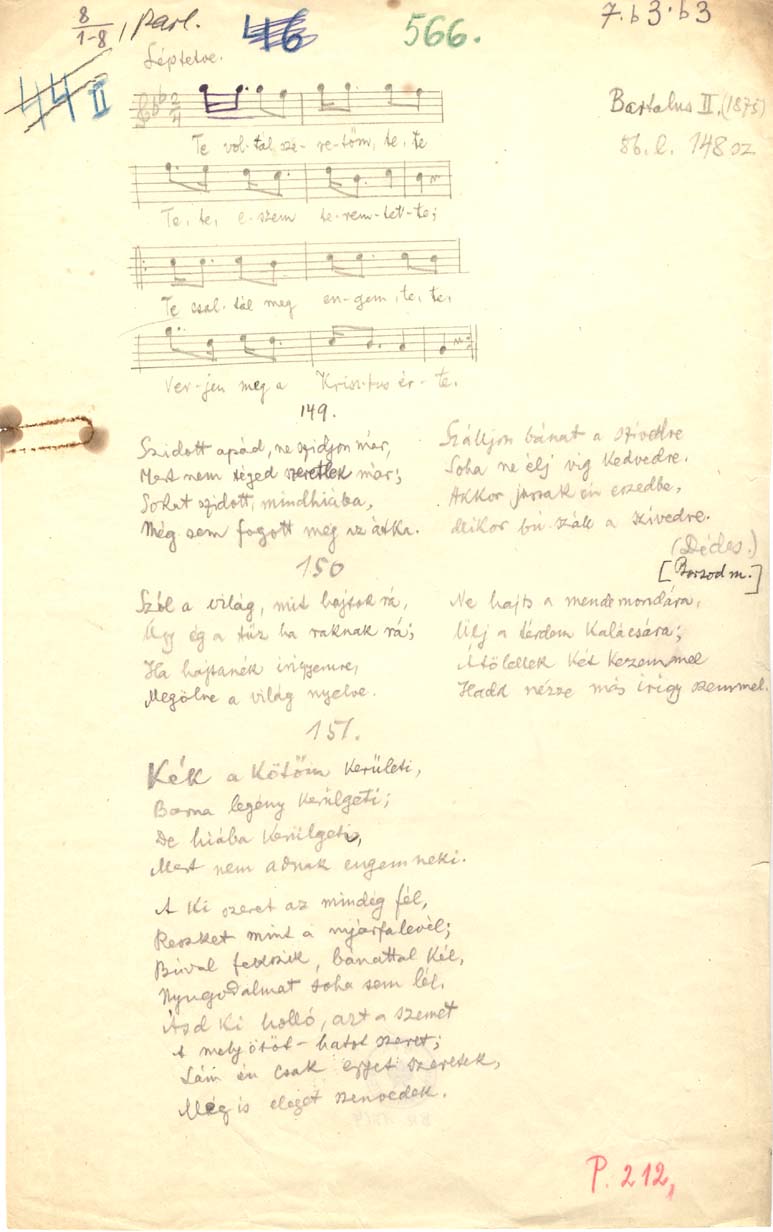 8/1-8, Parl.
46
566.
7. b3. b3
44 II
Léptetve.
Bartalus II. (1875)
56. l. 148 sz
2/4
Te vol-tál sze-re-tőm, te, te
Te, te, e-szem te-rem-tet-te;
Te csal-tál meg en-gem, te, te,
Ver-jen meg a Krisz-tus ér-te.
149.
Szidott apád, ne szidjon már,
Mert nem téged szeretlek már;
Sokat szidott, mindhiába,
Még sem fogott meg az átka.
Szálljon bánat a szívedre
Soha ne élj víg kedvedre.
Akkor jussak én eszedbe,
Mikor bú száll a szívedre.
(Dédes.)
[Borsod m.]
150
Szól a világ, mit hajtok rá,
Úgy ég a tűz ha raknak rá;
Ha hajtanék irígyemre,
Megölne a világ nyelve.
Ne hajts a mendemondára,
Ülj a térdem kalácsára;
Átölellek két kezemmel
Hadd nézze más irigy szemmel.
151.
Kék a kötőm kerületi,
Barna legény kerülgeti;
De hiába kerülgeti,
Mert nem adnak engem neki.
A ki szeret az mindég fél,
Reszket mint a nyárfalevél;
Búval fekszik, bánattal kél,
Nyugodalmat soha sem lél.
Ásd ki holló, azt a szemet
A mely ötöt-hatot szeret;
Lám én csak egyet szeretek,
Mégis eleget szenvedek.
P. 212,